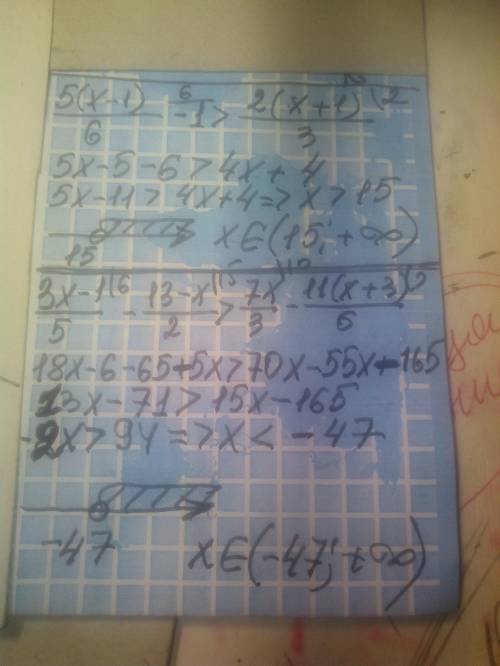 5(x-1)/6 - 1 > 2(x+1)/3 \2
5x-5-6>4x+4
5x-11>4x+4=>x>15
15 x∈(15;+∞)
3x-1/5 \6 - 13-x/2 \15 > 7x/3 \10 - 11(x+3)/6 \5
18x-6-65+5x>70x-55x-165
13x-71>15x-165
-2x>94=>x<-47
-47 x∈(-47;+∞)